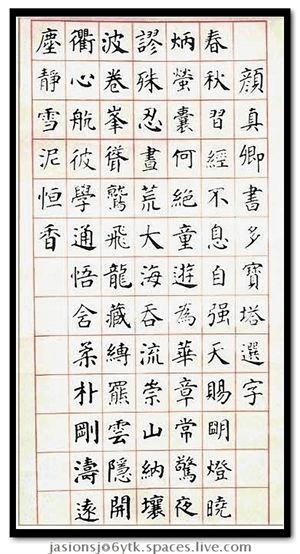 顏真卿書多寶塔選字
春秋習經不息自强天賜明燈曉
炳螢囊何絕童遊為華章常驚夜
謬殊忍晝荒大海吞流崇山納壤
波卷峯聳鷲飛龍藏縛羆雲隱開
衢心航彼學通悟含柔朴剛濤遠
塵靜雪泥恒香
jasionsj06ytk.spaces.live.com